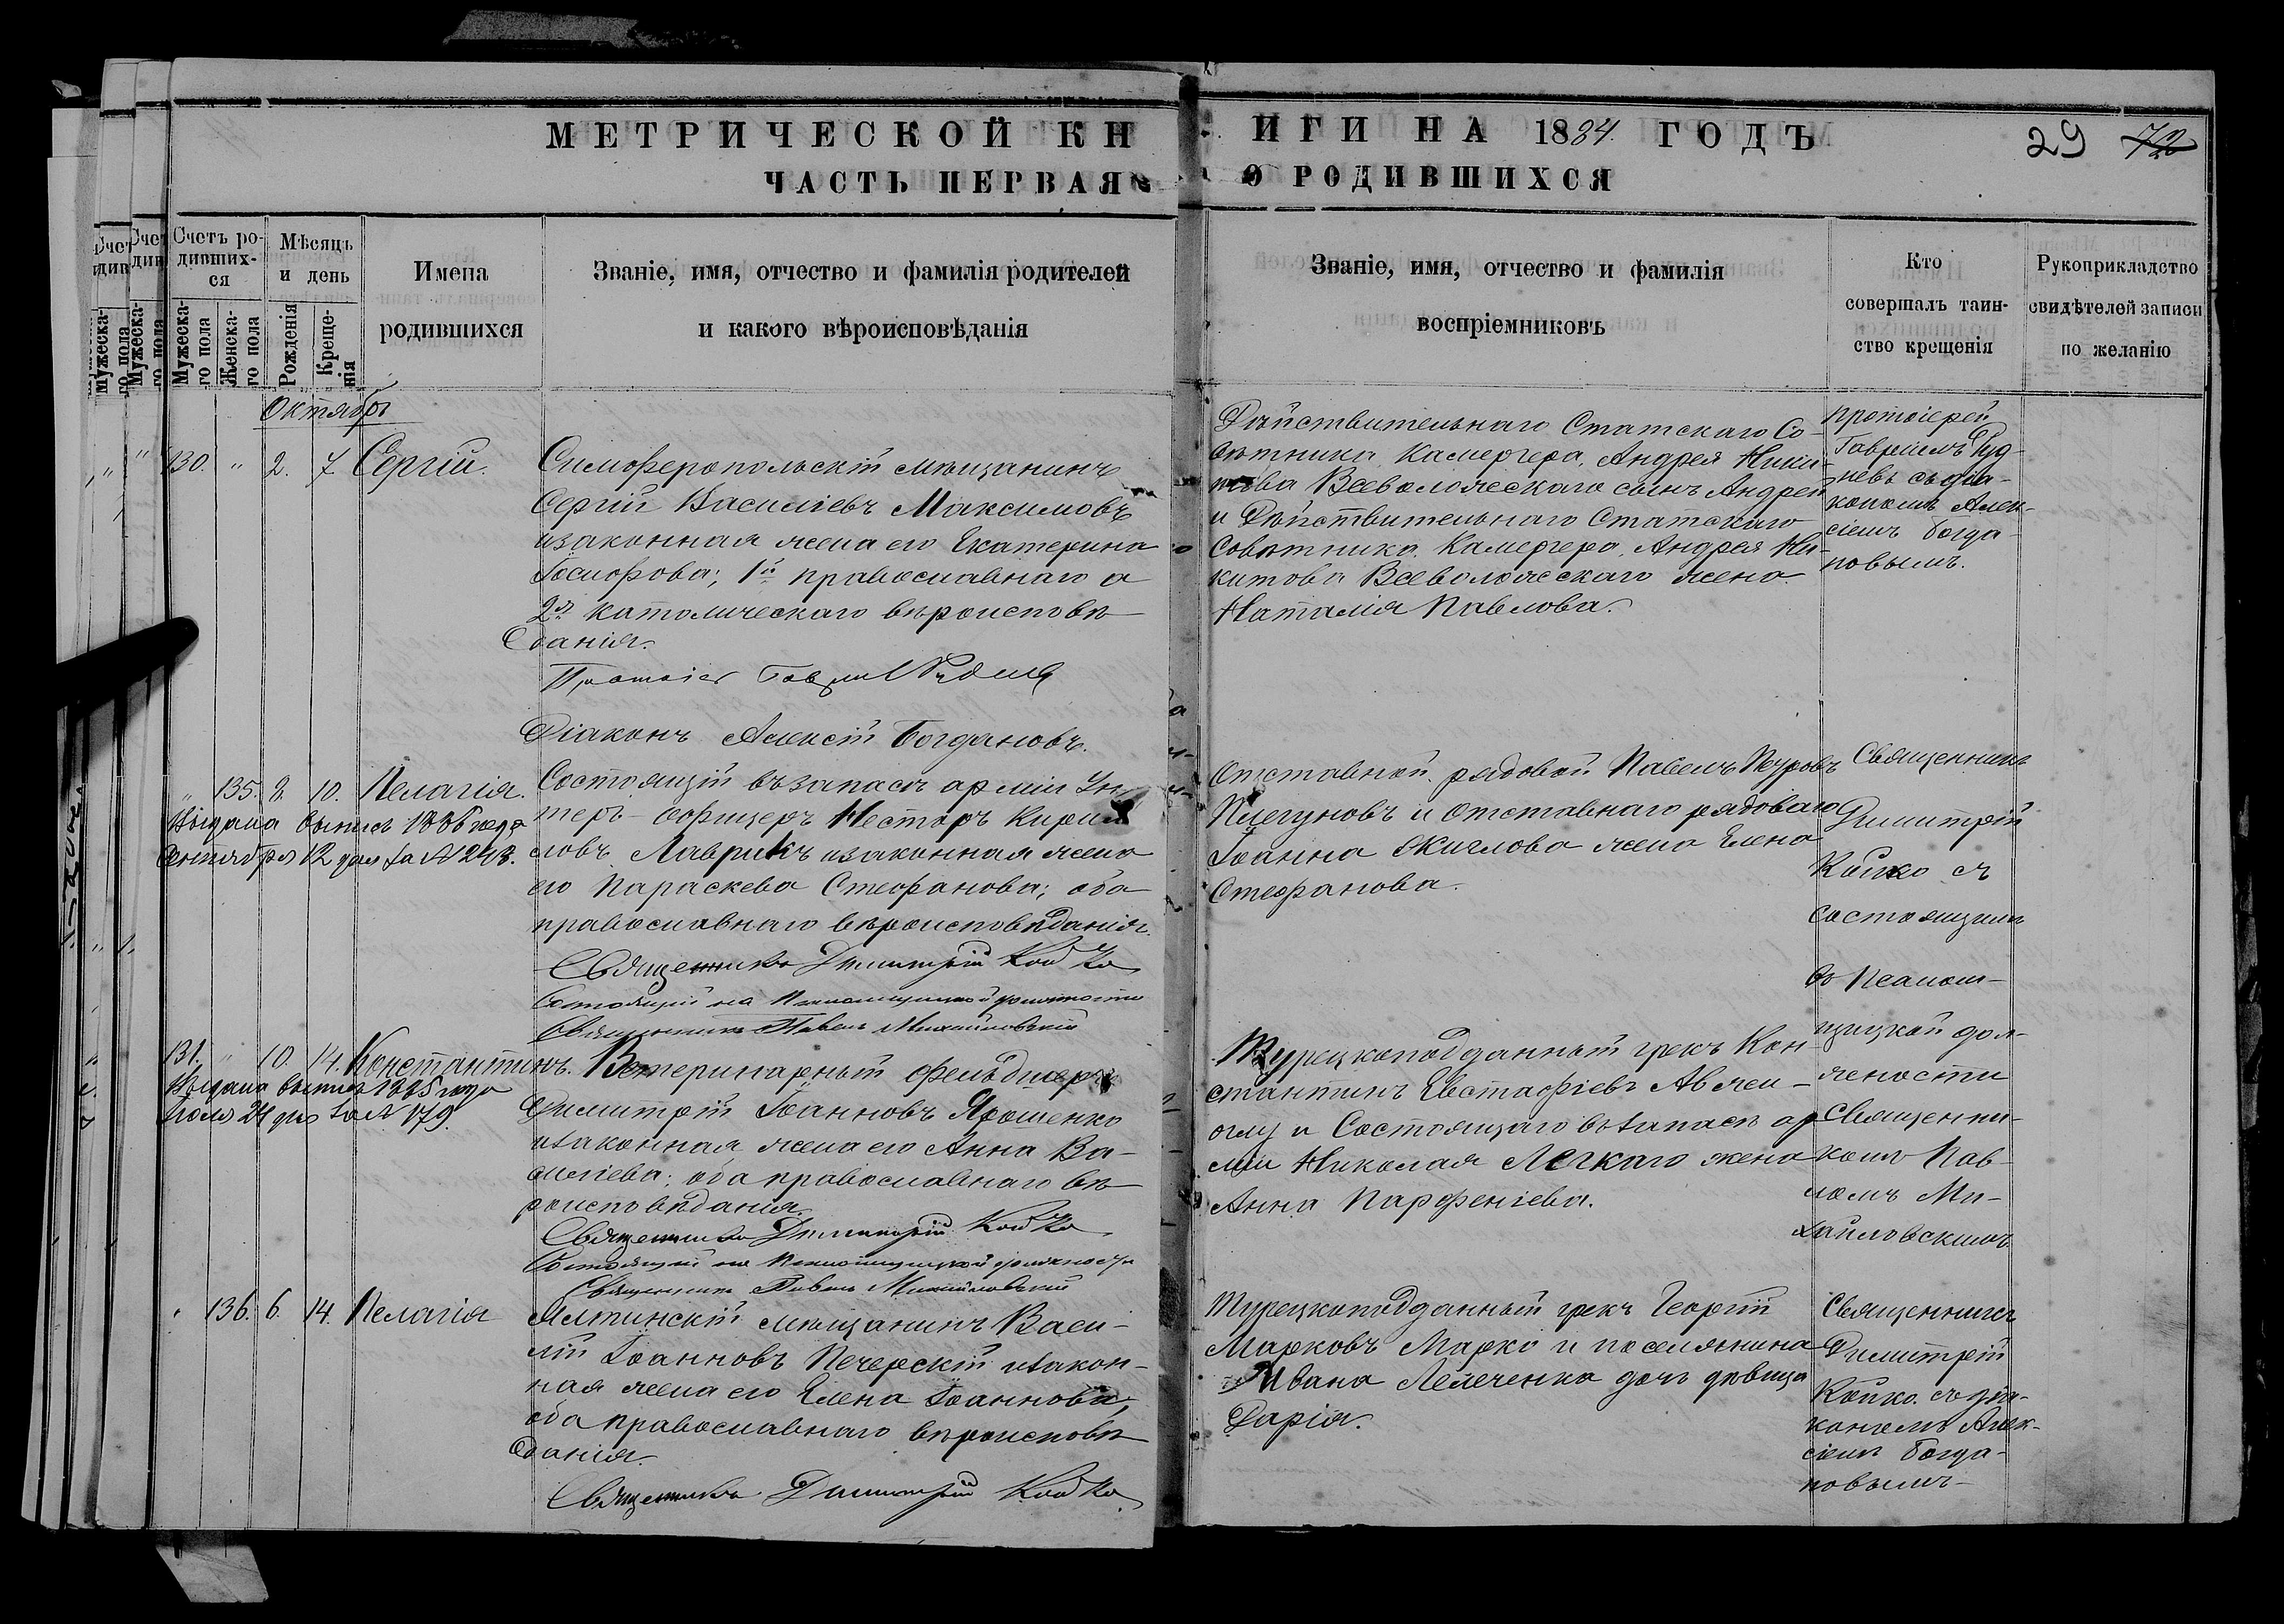 МЕТРИЧЕСКОЙ КН
ИГИ НА 1884. ГОДЪ
29 72
ЧАСТЬ ПЕРВАЯ
О РОДИВШИХСЯ
Счетъ ро-
дивших-
ся
Мужеска-
го пола
Женска-
го пола
Мѣсяцъ
и день
Рожденія
Креще-
нія
Имена
родившихся
Званіе, имя, отчество и фамилія родителей
и какого вѣроисповѣданія
Званіе, имя, отчество и фамилія
воспріемниковъ
Кто
совершалъ таин-
ство крещенія
Рукоприкладство
свидѣтелей записи
по желанію
Октябрь
130. " 2. 7. Сергій.
Симферопольскій мѣщанинъ
Сергій Василіевъ Максимовъ
изаконная жена его Екатерина
Іосифова; 1й православнаго а
2я католическаго вѣроисповѣ
данія.
Протоіер Гавріил Руднев
Діаконъ Алексій Богдановъ.
Дѣйствительнаго Статскаго Со-
вѣтника, Камергера, Андрея Ники-
това Всеволожскаго сынъ Андрей
и Дѣйствительнаго Статскаго
Совѣтника, Камергера, Андрея Ни-
китова Всеволожскаго жена
Наталія Павлова.
протоіерей
Гавріилъ Руд-
невъ съ діа-
кономъ Алек-
сіемъ Богда-
новымъ.
" 135. 8. 10. Пелагія.
Выдана выпись 1886 года
Сентября 12 дня за № 243.
Состоящій въ запасѣ арміи Ун-
теръ-офицеръ Несторъ Кирил
ловъ Лаврикъ изаконная жена
его Параскева Стефанова; оба
православнаго вѣроисповѣданія.
Священникъ Димитрій Койко
Состоящій на Псаломщицкой должности
Священникъ Павелъ Михайловскій
Отставной рядовой Павелъ Петровъ
Плегуновъ и отставнаго рядоваго
Іоанна Жиглова жена Елена
Стефанова.
Священникъ
Димитрій
Койко съ
состоящимъ
въ Псалом-
щицкой дол-
жности
Священни-
комъ Пав-
ломъ Ми-
хайловскимъ
131. " 10. 14. Константинъ.
Выдана выпись 1885 года
24 дня за № 179.
Ветеринарный фельдшеръ
Димитрій Іоанновъ Ярошенко
изаконная жена его Анна Ва-
силіева; оба православнаго вѣ
роисповѣданія.
Священникъ Димитрій Койко
Состоящій на Псаломщицкой должности
Священникъ Павелъ Михайловскій
Турецкоподданный грекъ Кон-
стантинъ Евстафіевъ Авжи-
оглу и Состоящаго въ запасѣ ар
міи Николая Легкаго жена
Анна Парфеніева.
" 136. 6. 14. Пелагія
Ялтинскій мѣщанинъ Васи-
лій Іоанновъ Печерскій изакон-
ная жена его Елена Іоаннова,
оба православнаго вѣроисповѣ
данія.
Священникъ Димитрій Койко
Турецкоподданный грекъ Георгій
Марковъ Марко и поселянина
Ивана Лемеченка дочь дѣвица
Дарія.
Священникъ
Димитрій
Койко съ діа-
кономъ Алек-
сіемъ Богда-
новымъ